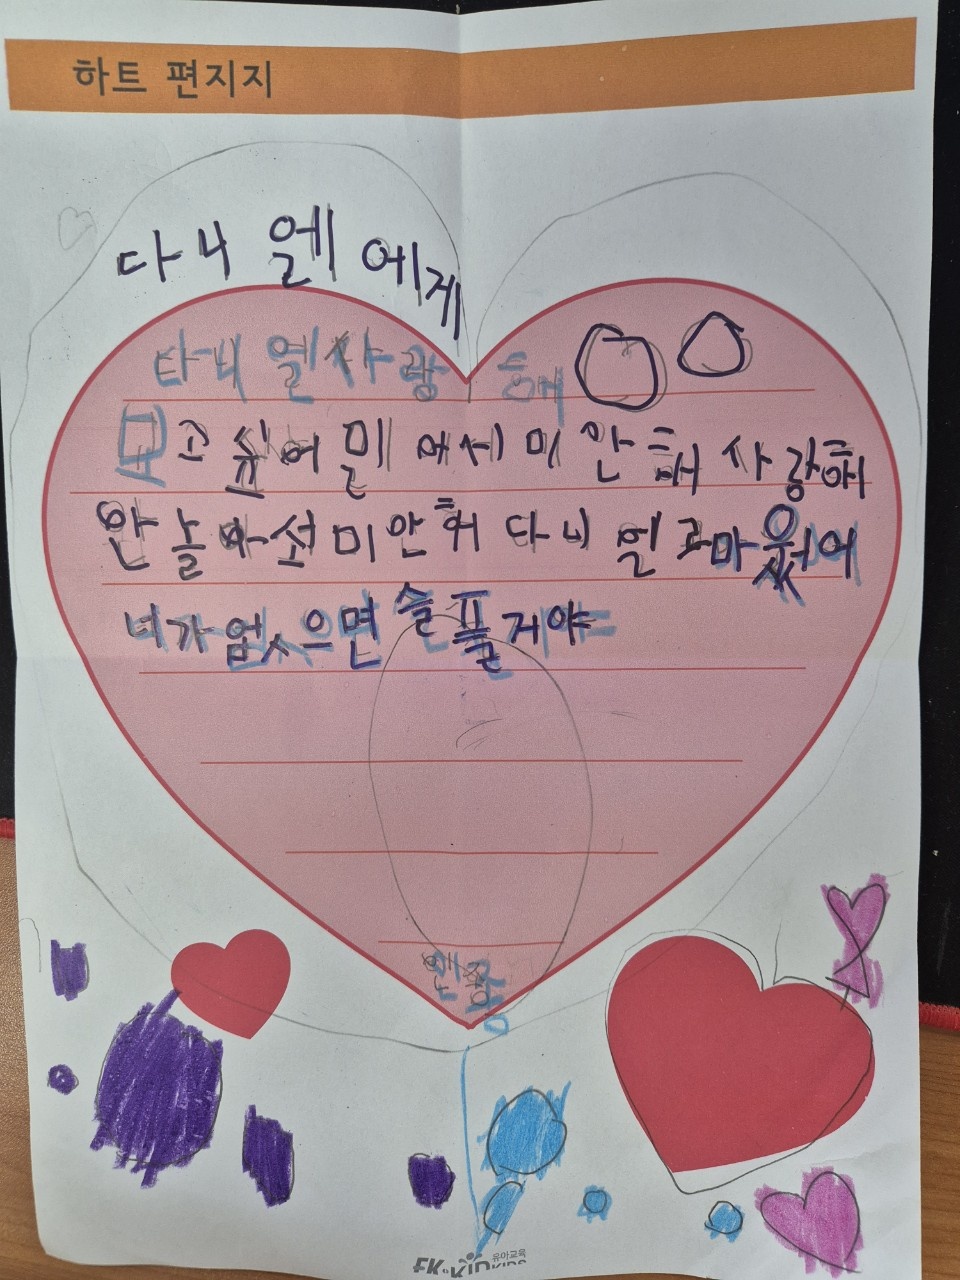 하트 편지지
다니엘에게
다니엘사랑해
고싶어 밀어서 미안해 사랑해
안놀아서 미안해 다니엘 고마웠어
너가 없으면 슬플거야
안
유아교육
FK·KID KIDS